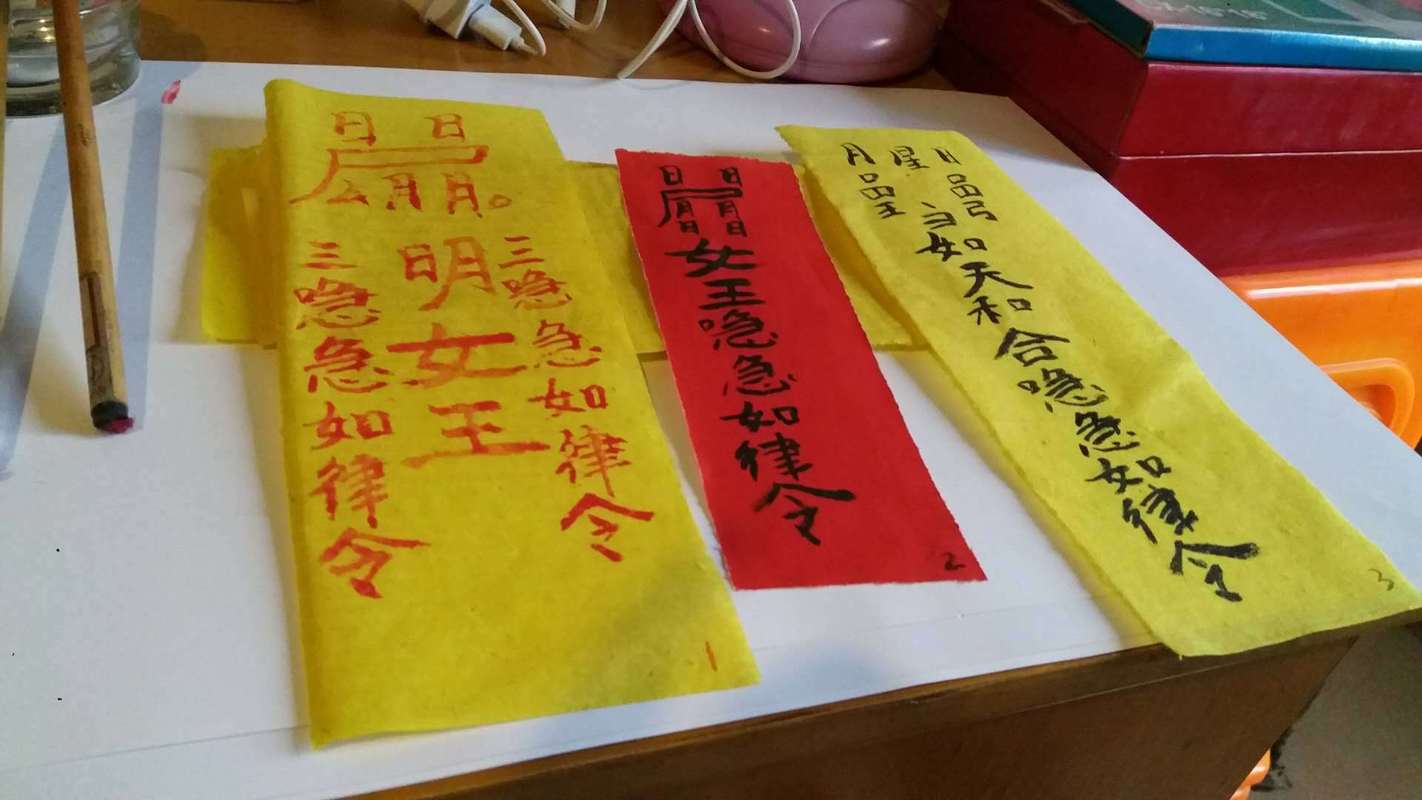 日 日
月 月
三 急 急 如 律 令
明 女 王
三 急 急 如 律 令
1
日 日
月 月
日 日
女 王 急 急 如 律 令
2
月 星 日
如 天 和 合 急 急 如 律 令
3